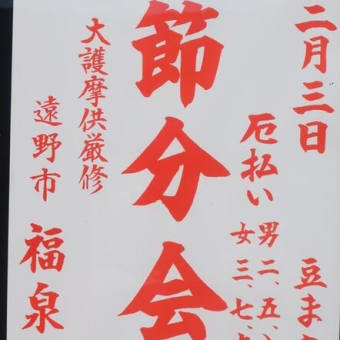 二月三日
豆ま
厄払い
男二、五、
女三、七、
節分会
大護摩供厳修
遠野市 福泉